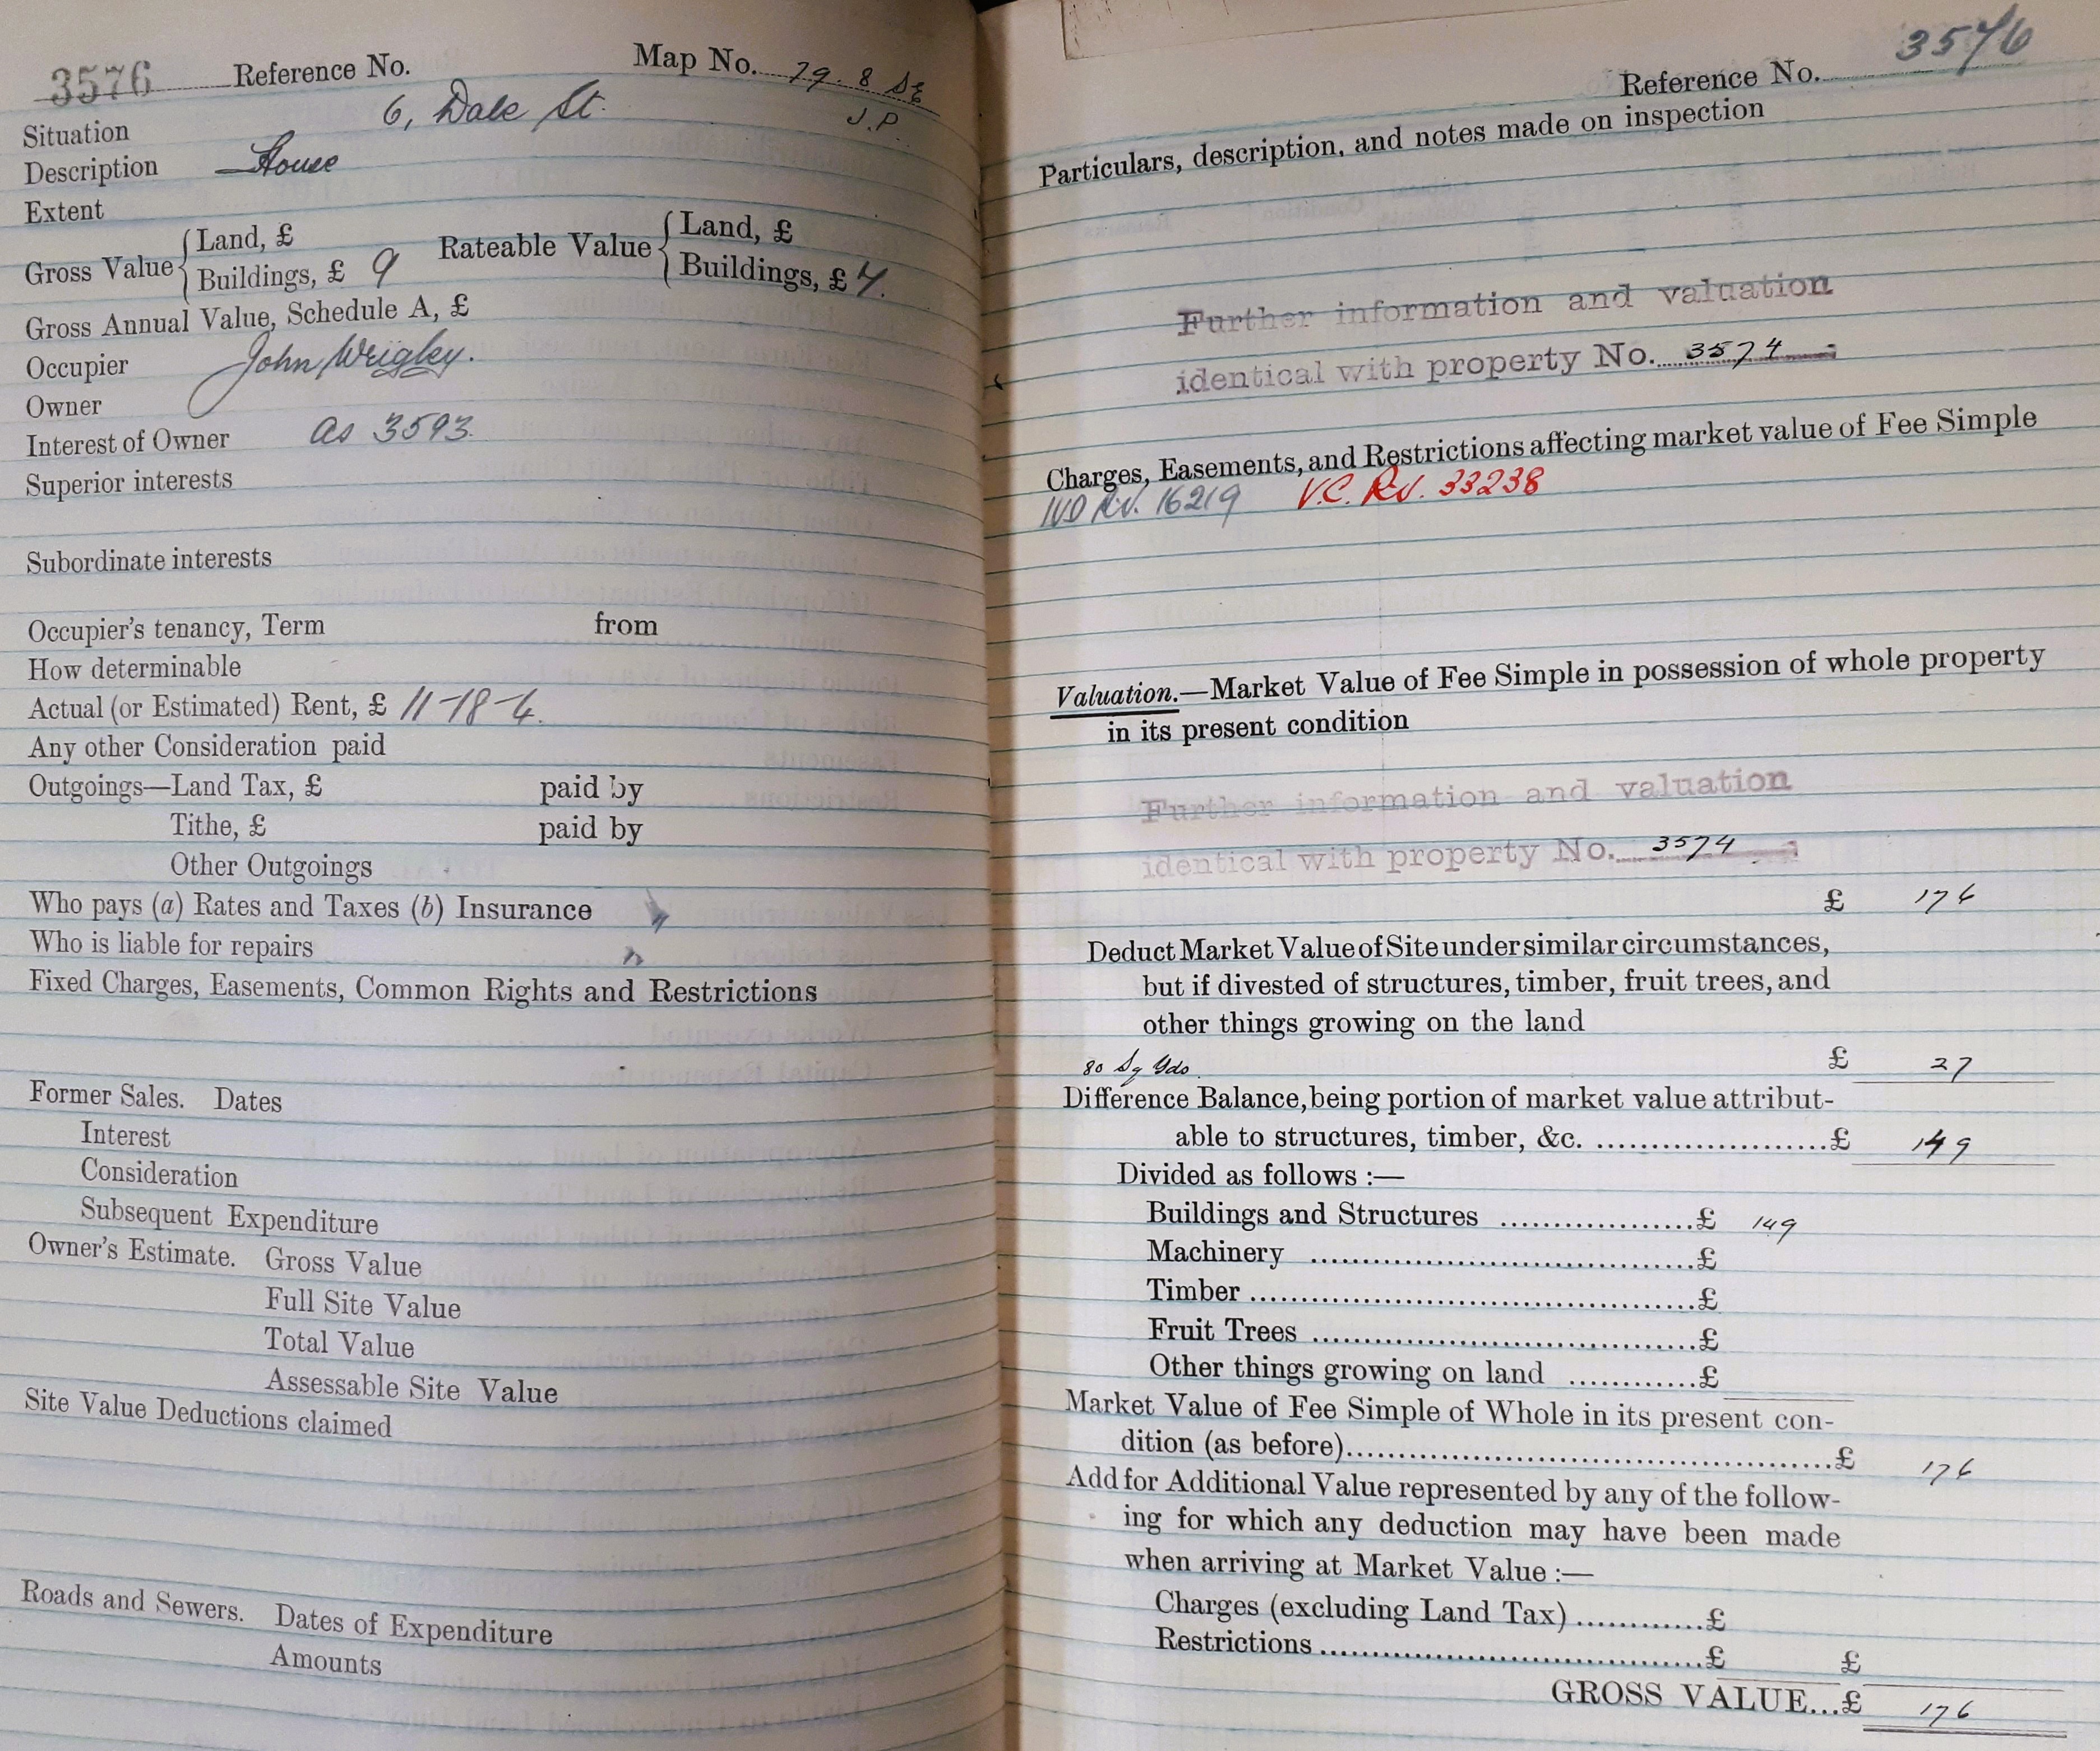 3576 Reference No. Map No. 79. 8 SE
J.P.
Situation 6, Dale St.
Description House
Extent
Gross Value { Land, £
Buildings, £ 9 Rateable Value { Land, £
Buildings, £ 7.
Gross Annual Value, Schedule A, £
Occupier John Wrigley.
Owner
Interest of Owner as 3593.
Superior interests
Subordinate interests
Occupier's tenancy, Term from
How determinable
Actual (or Estimated) Rent, £ 11-18-4.
Any other Consideration paid
Outgoings—Land Tax, £ paid by
Tithe, £ paid by
Other Outgoings
Who pays (a) Rates and Taxes (b) Insurance
Who is liable for repairs
Fixed Charges, Easements, Common Rights and Restrictions
Former Sales. Dates
Interest
Consideration
Subsequent Expenditure
Owner's Estimate. Gross Value
Full Site Value
Total Value
Assessable Site Value
Site Value Deductions claimed
Roads and Sewers. Dates of Expenditure
Amounts
Reference No. 3576
Particulars, description, and notes made on inspection
Further information and valuation
identical with property No. 3574
Charges, Easements, and Restrictions affecting market value of Fee Simple
IVD Rv. 16219 V.C. Rv. 33238
Valuation.—Market Value of Fee Simple in possession of whole property
in its present condition
Further information and valuation
identical with property No. 3574
£ 176
Deduct Market Value of Site under similar circumstances,
but if divested of structures, timber, fruit trees, and
other things growing on the land
80 Sq Yds. £ 27
Difference Balance, being portion of market value attribut-
able to structures, timber, &c. £ 149
Divided as follows :—
Buildings and Structures £ 149
Machinery £
Timber £
Fruit Trees £
Other things growing on land £
Market Value of Fee Simple of Whole in its present con-
dition (as before) £ 176
Add for Additional Value represented by any of the follow-
ing for which any deduction may have been made
when arriving at Market Value :—
Charges (excluding Land Tax) £
Restrictions £ £
GROSS VALUE...£ 176